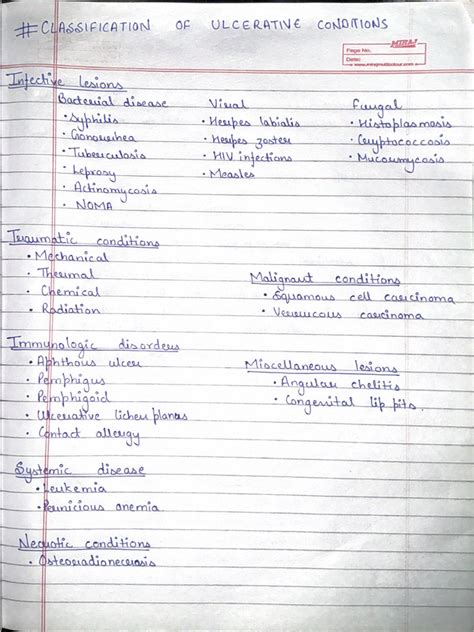 # CLASSIFICATION OF ULCERATIVE CONDITIONS
MIRAJ
Page No.
Date:
Infective Lesions
Bacterial disease
• Syphilis
• Gonorrhea
• Tuberculosis
• Leprosy
• Actinomycosis
• NOMA
Viral
• Herpes labialis
• Herpes zoster
• HIV infections
• Measles
Fungal
• Histoplasmosis
• Cryptococcosis
• Mucormycosis
Traumatic conditions
• Mechanical
• Thermal
• Chemical
• Radiation
Malignant conditions
• Squamous cell carcinoma
• Verrucous carcinoma
Immunologic disorders
• Aphthous ulcer
• Pemphigus
• Pemphigoid
• Ulcerative lichen planus
• Contact allergy
Miscellaneous lesions
• Angular chelitis
• Congenital lip pits.
Systemic disease
• Leukemia
• Pernicious anemia
Necrotic conditions
• Osteoradionecrosis